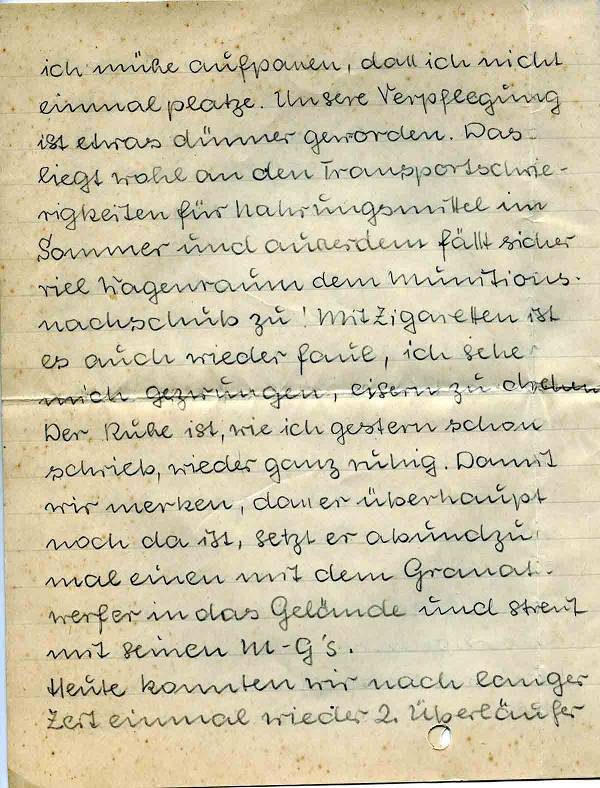 ich mühe aufpassen, dass ich nicht
einmal platze. Unsere Verpflegung
ist etwas dünner geworden. Das
liegt wohl an den Transportschwie-
rigkeiten für Nahrungsmittel im
Sommer und ausserdem fällt sicher
viel Wagenraum dem Munitions-
nachschub zu! Mit Zigaretten ist
es auch wieder faul, ich sehe
mich gezwungen, eisern zu drehen
Der Ruhe ist, wie ich gestern schon
schrieb, wieder ganz ruhig. Damit
wir merken, dass er überhaupt
noch da ist, setzt er abundzu
mal einen mit dem Granat-
werfer in das Gelände und streut
mit seinen M-G's.
Heute konnten wir nach langer
Zeit einmal wieder 2. Überläufer